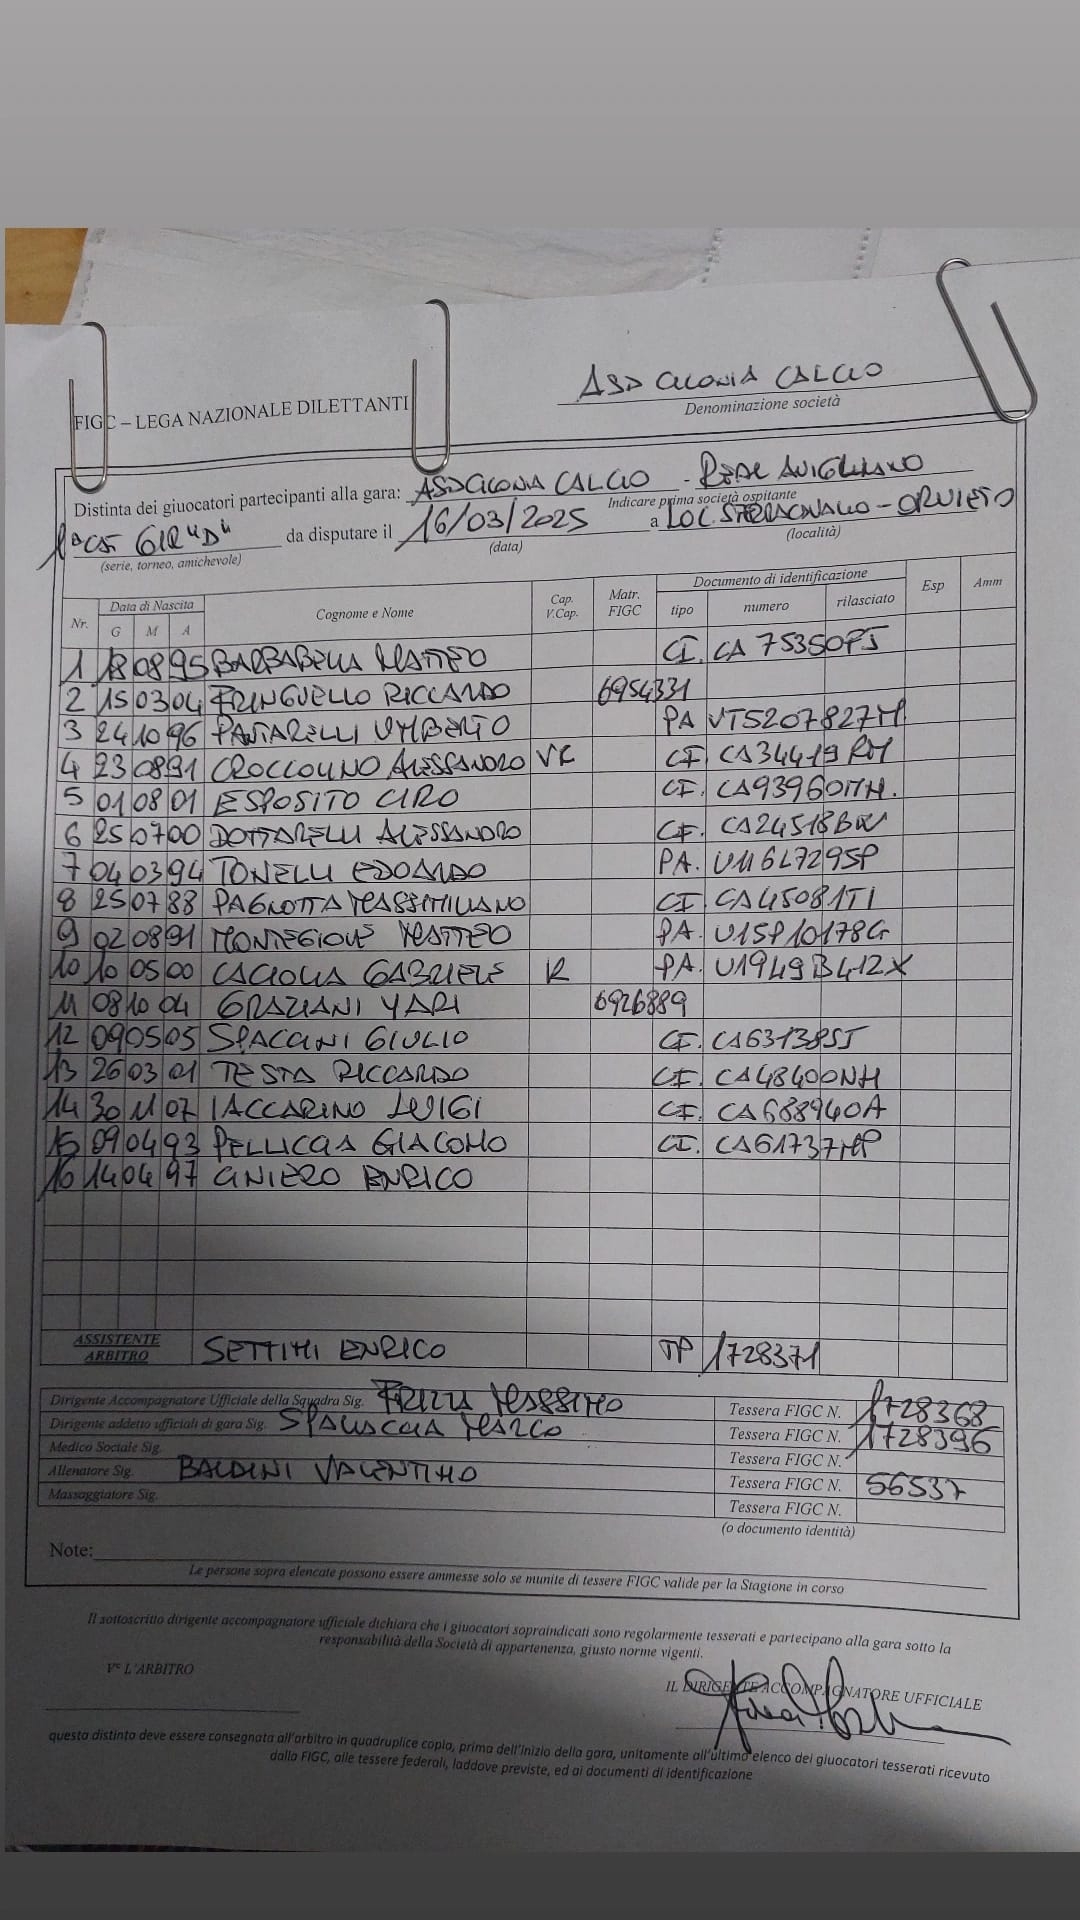 ASD CICONIA CALCIO
FIGC – LEGA NAZIONALE DILETTANTI
Denominazione società
Distinta dei giuocatori partecipanti alla gara: ASD CICONIA CALCIO - REAL AVIGLIANO
Indicare prima società ospitante
GIR "D" da disputare il 16/03/2025 a LOC. - ORVIETO
(serie, torneo, amichevole) (data) (località)
Nr. Data di Nascita Cognome e Nome Cap. V.Cap. Matr. FIGC Documento di identificazione Esp Amm
G M A tipo numero rilasciato
1 18 08 95 BARBABELLA MATTEO CI. CA 75350PJ
2 15 03 04 FRINGUELLO RICCARDO 6954331
3 24 10 96 PANTARELLI UMBERTO PA VT5207827M
4 23 08 91 CROCCOLINO ALESSANDRO VK CI CA34419RM
5 01 08 01 ESPOSITO CIRO CI. CA93960MH.
6 25 07 00 DOTTARELLI ALESSANDRO CI. CA24518BW
7 04 03 94 TONELLI EDOARDO PA. U116L7295P
8 25 07 88 PAGNOTTA MASSIMILIANO CI CA45081TI
9 02 08 91 MONTEGIOVE MATTEO PA. U15P10178G
10 10 05 00 CACIOLLA GABRIELE K PA. U1949B412X
11 08 10 04 GRAZIANI YARI 6926889
12 09 05 05 SPACCINI GIULIO CI. CA63138SJ
13 26 03 01 TESTA RICCARDO CI. CA48400NH
14 30 11 07 IACCARINO LUIGI CI. CA68894OA
15 09 04 93 PELLICCIA GIACOMO CI. CA61737MP
16 14 04 97 CINIERO ENRICO
ASSISTENTE ARBITRO SETTIMI ENRICO TP 1728371
Dirigente Accompagnatore Ufficiale della Squadra Sig. FRIZZI MASSIMO Tessera FIGC N. 1728368
Dirigente addetto ufficiali di gara Sig. MARCO Tessera FIGC N. 1728396
Medico Sociale Sig. Tessera FIGC N.
Allenatore Sig. BALDINI VALENTINO Tessera FIGC N. 56537
Massaggiatore Sig. Tessera FIGC N.
(o documento identità)
Note:
Le persone sopra elencate possono essere ammesse solo se munite di tessere FIGC valide per la Stagione in corso
Il sottoscritto dirigente accompagnatore ufficiale dichiara che i giuocatori sopraindicati sono regolarmente tesserati e partecipano alla gara sotto la
responsabilità della Società di appartenenza, giusto norme vigenti.
V° L'ARBITRO
IL DIRIGENTE ACCOMPAGNATORE UFFICIALE
questa distinta deve essere consegnata all'arbitro in quadruplice copia, prima dell'inizio della gara, unitamente all'ultimo elenco dei giuocatori tesserati ricevuto
dalla FIGC, alle tessere federali, laddove previste, ed ai documenti di identificazione